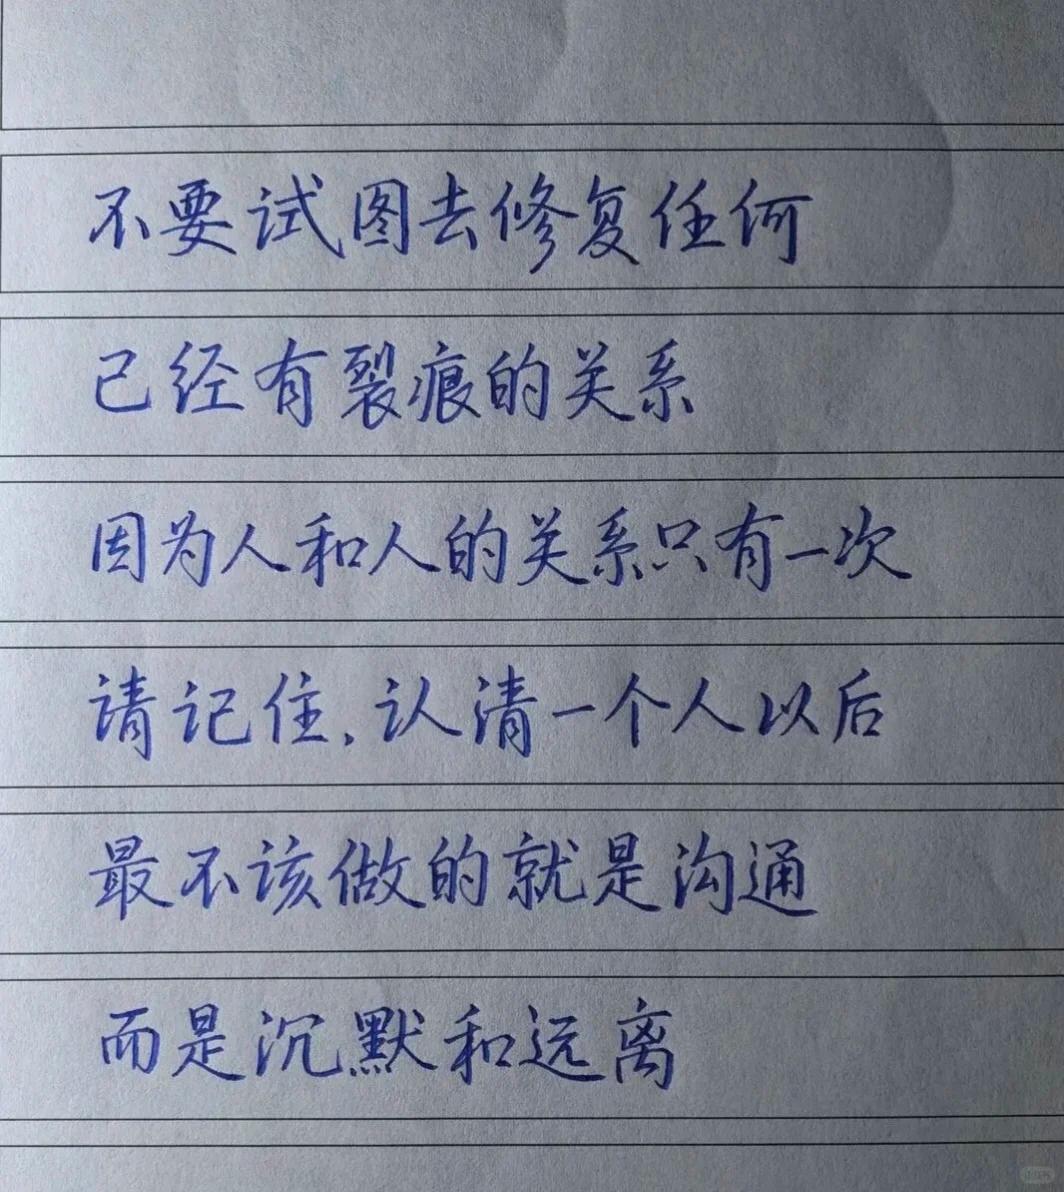 不要试图去修复任何
已经有裂痕的关系
因为人和人的关系只有一次
请记住,认清一个人以后
最不该做的就是沟通
而是沉默和远离